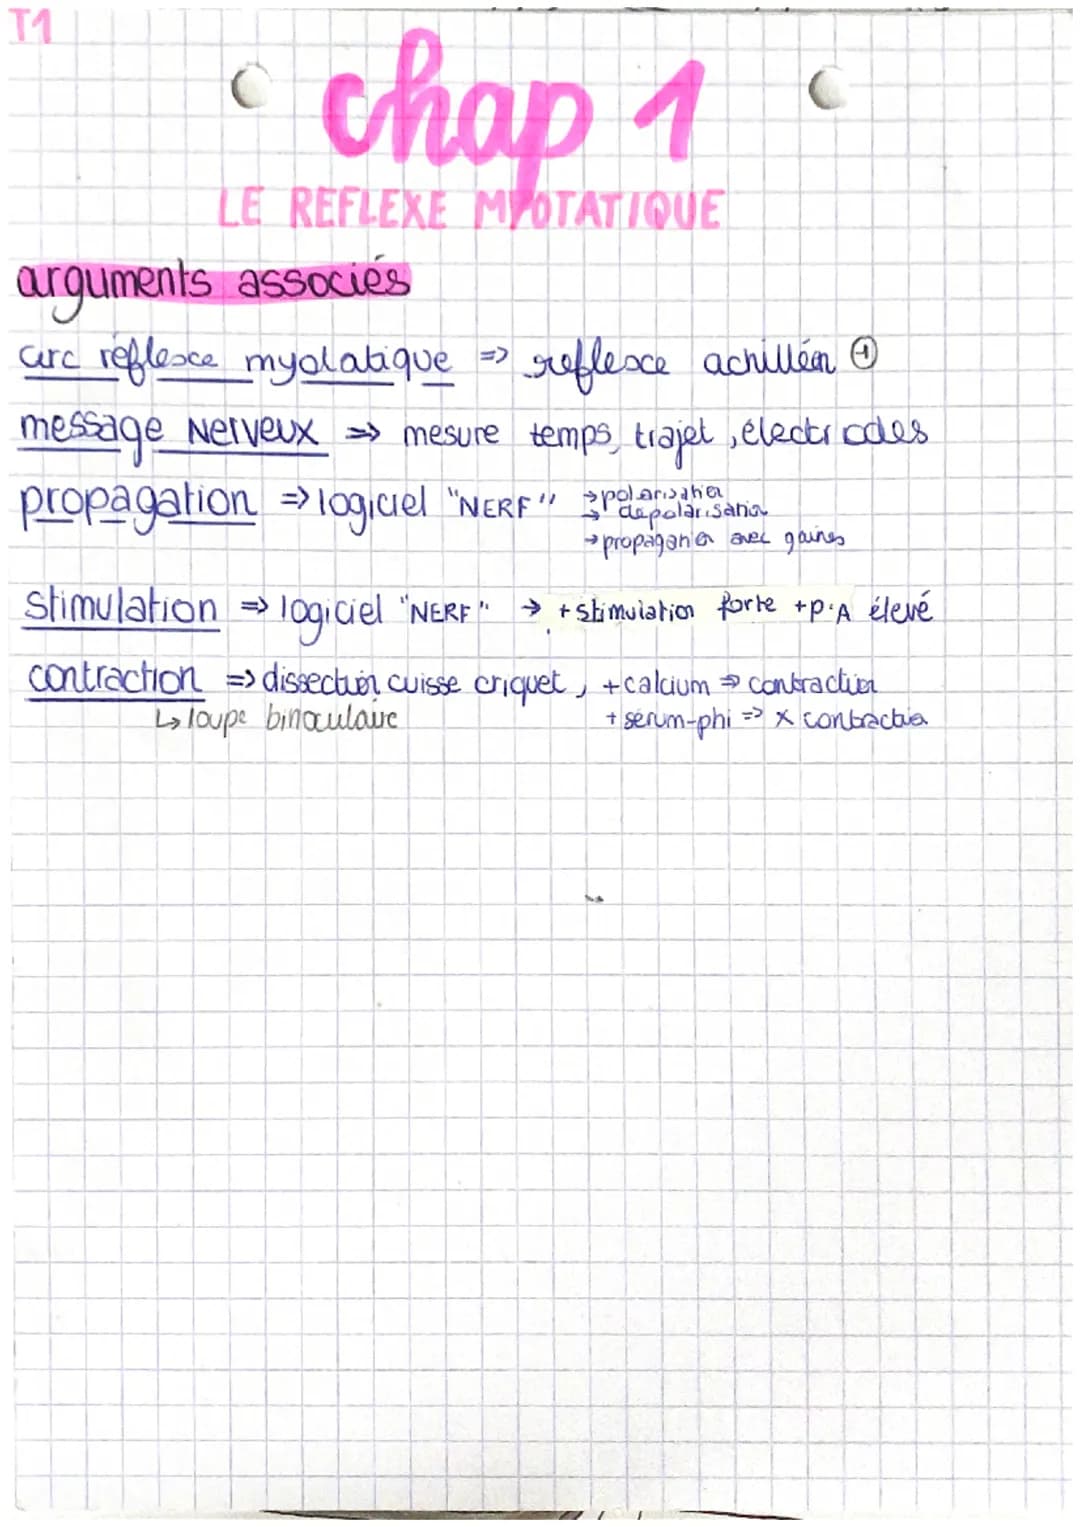 T1
chap 1
LE REFLEXE MYOTATIQUE
arguments associés
arc réflexe myotatique => reflexe achilléen ①
message nerveux => mesure temps, trajet, électrodes
propagation => logiciel "NERF" → polarisation
→ dépolarisation
→ propagation avec gaines
stimulation => logiciel "NERF" → + stimulation forte + P.A élevé
contraction => dissection cuisse criquet, + calcium => contraction
↳ loupe binoculaire + sérum-phi => x contraction